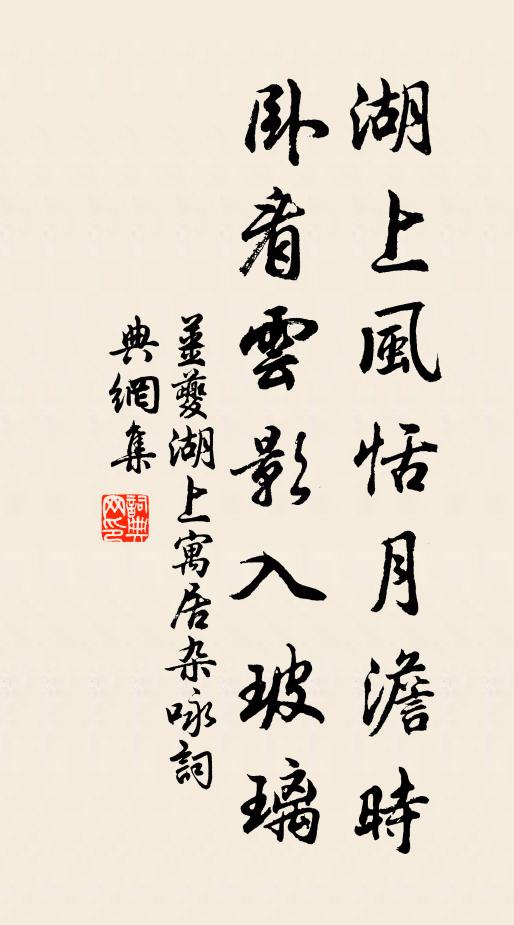 湖上風恬月澹時
臥看雲影入玻璃
姜夔湖上寓居杂咏詞
典網集
詞典
网印